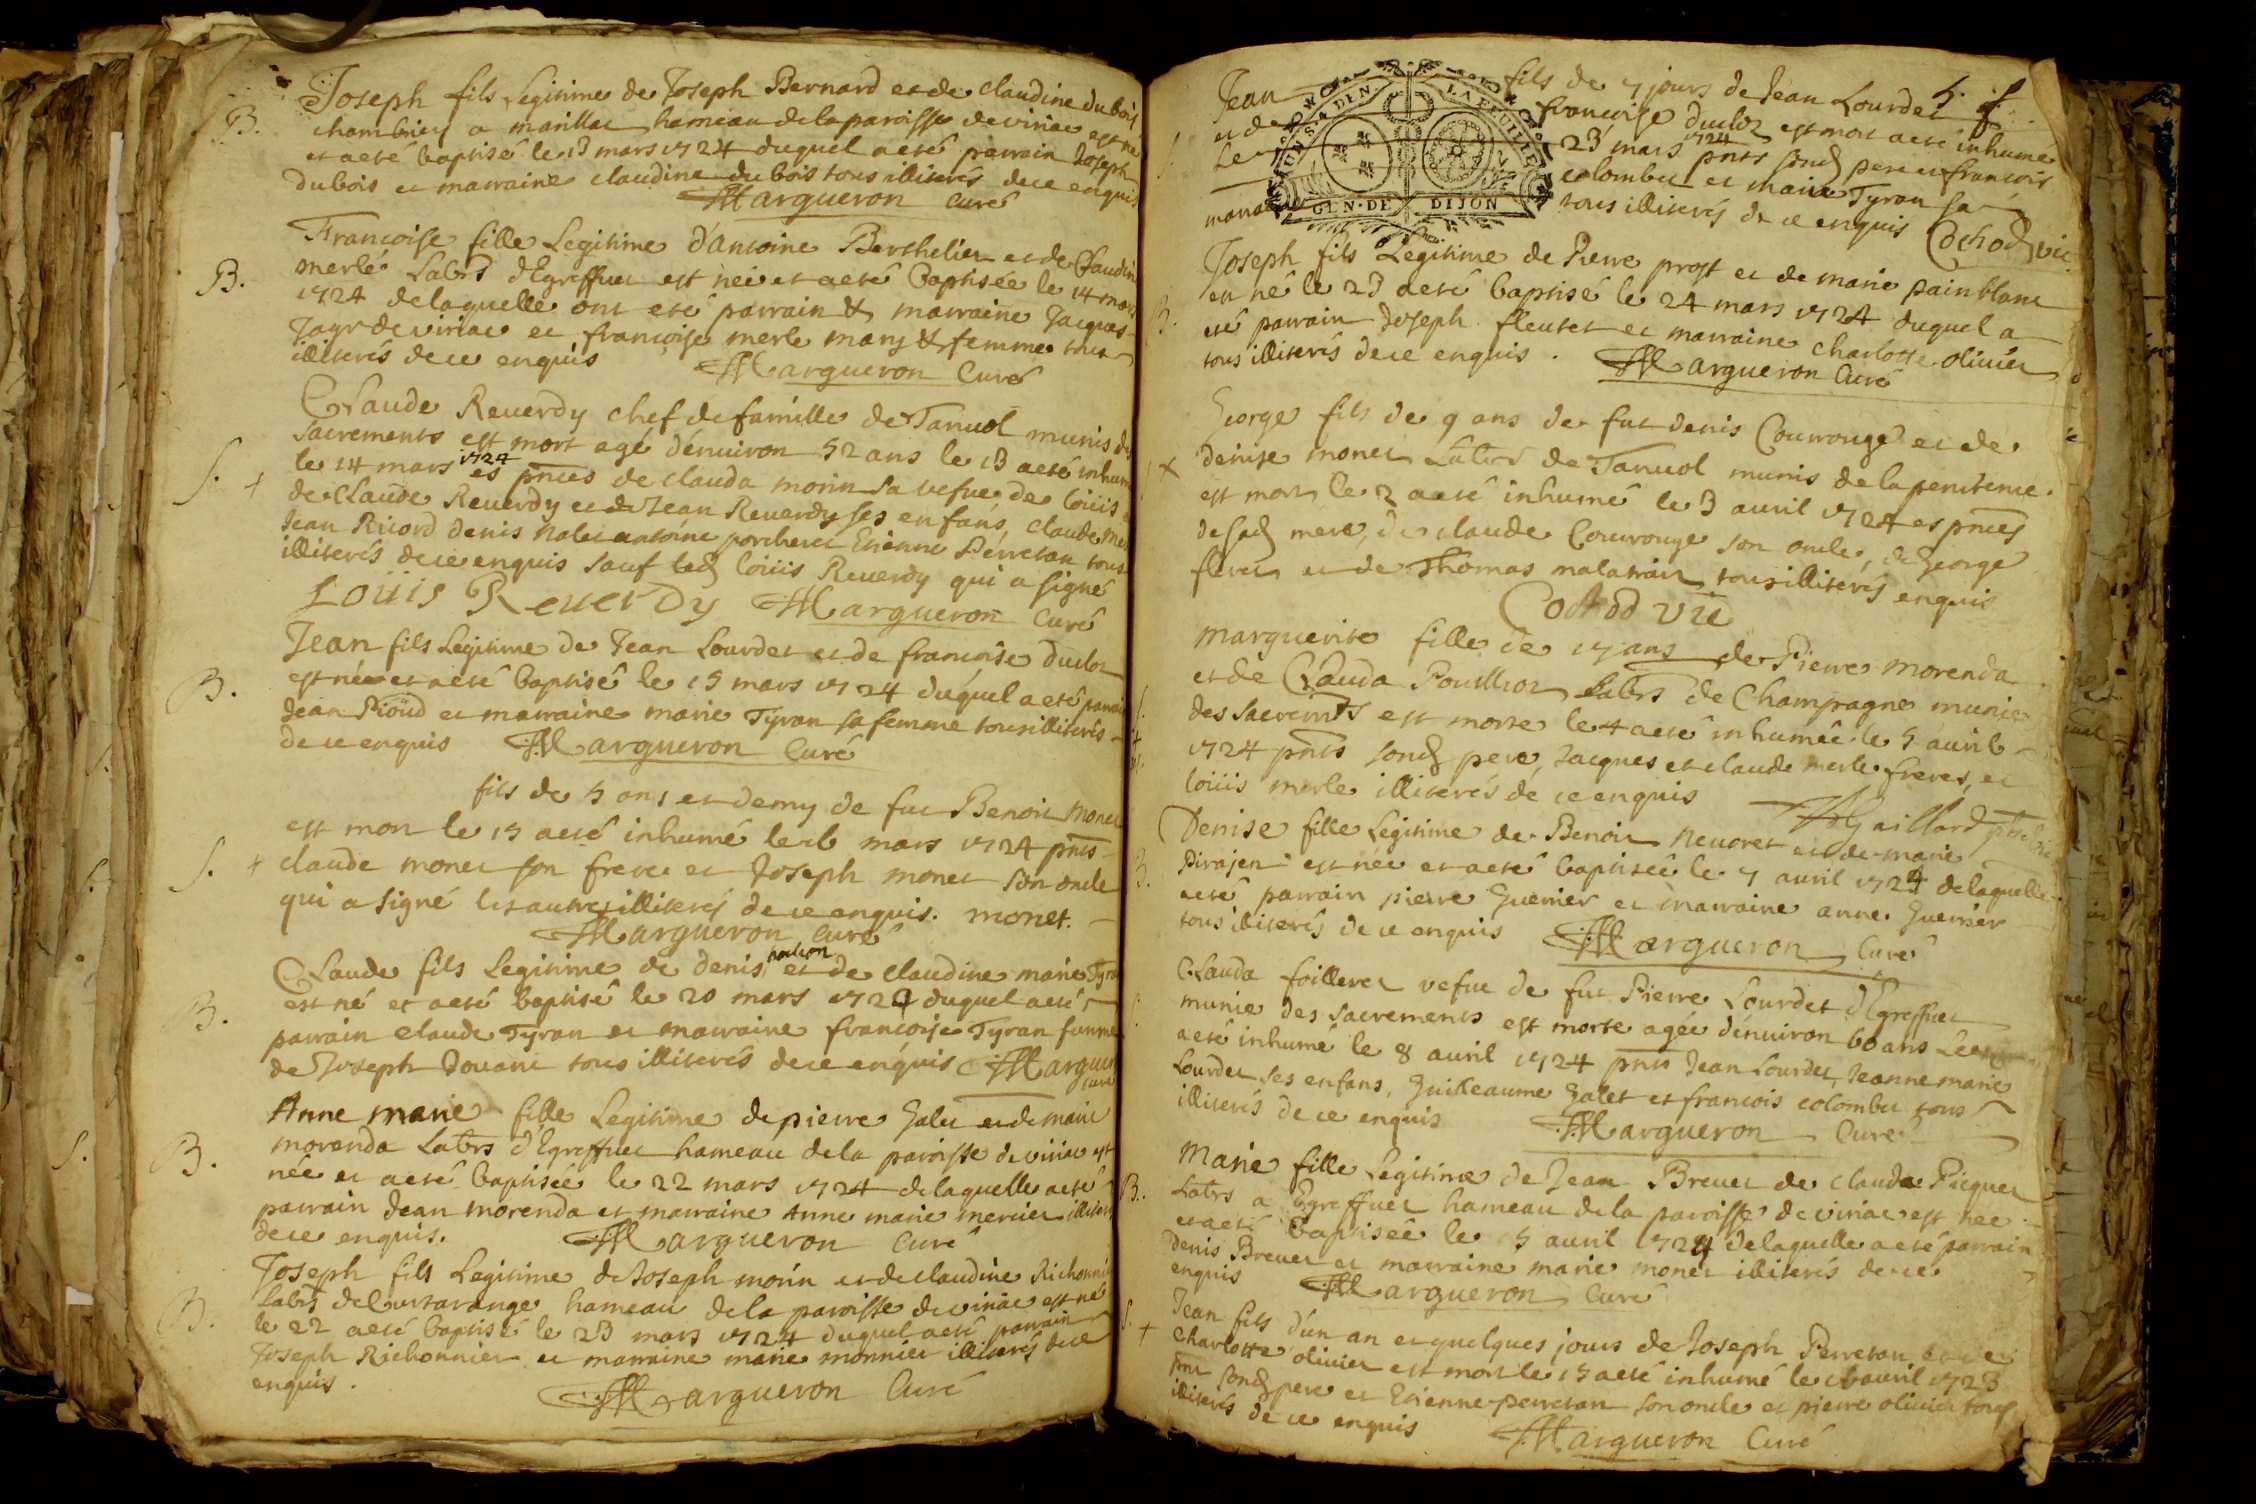 Joseph fils Legitime de Joseph Bernard et de claudine du bois
B. chambrier a marillat hameau de la paroisse de viriac est né
et a eté baptisé le 13 mars 1724 duquel a eté parrain Joseph
dubois et marraine claudine du bois tous illiterés de ce enquis
Margueron Curé
Francoise fille Legitime d'antoine Berthelier et de Claudine
B. merle Labrs d'Egreffuet est née et a eté baptisée le 14 mars
1724 de laquelle ont eté parrain & marraine Jacques
Jayr de viriac et francoise merle mary & femme tous
illiterés de ce enquis Margueron Curé
Claude Reverdy chef de famille de Tanvol munis des
sacrements est mort agé d'environ 52 ans le 13 a eté inhumé
S. + le 14 mars 1724 es pnces de clauda morin sa vefve de loüis
de Claude Reverdy et de Jean Reverdy ses enfans, claude
Jean Ricord denis Nalet antoine porcheret Etienne Perretan tous
illiterés de ce enquis sauf led loüis Reverdy qui a signé
Loüis Reverdy Margueron Curé
Jean fils Legitime de Jean Lourdet et de francoise duclot
B. est né et a eté baptisé le 15 mars 1724 duquel a eté parrain
Jean Pioüd et marraine marie Tyran sa femme tous illiterés
de ce enquis Margueron Curé
fils de 5 ans et demy de fut Benoit Monet
est mort le 15 a eté inhumé le 16 mars 1724 pnts
S. + claude monet son frere et Joseph monet son oncle
qui a signé les autres illiterés de ce enquis. monet.
Margueron Curé
Claude fils Legitime de denis et de claudine marie Tyran
B. est né et a eté baptisé le 20 mars 1724 duquel a eté
parrain claude Tyran et marraine francoise Tyran femme
de Joseph Douane tous illiterés de ce enquis Margueron
curé
Anne marie fille Legitime de pierre Galet et de marie
B. morenda Labrs d'Egreffuet hameau de la paroisse de viriac est
née et a eté baptisée le 22 mars 1724 de laquelle a eté
parrain Jean morenda et marraine Anne marie mercier illiterés
de ce enquis. Margueron Curé
Joseph fils Legitime de Joseph morin et de claudine Richonnier
B. Labrs de Curtarange hameau de la paroisse de viriac est né
le 22 a eté baptisé le 23 mars 1724 duquel a eté parrain
Joseph Richonnier et marraine marie monnier illiterés de ce
enquis. Margueron Curé
Jean fils de 7 jours de Jean Lourdet 5.
et de francoise duclot est mort a eté inhumé
Le 23 mars 1724 pnts sond pere et francois
colombet et marie Tyran sa
tous illiterés de ce enquis Cochod vic
GEN·DE DIJON
Joseph fils Legitime de Pierre prost et de marie pain blanc
B. est né le 23 a eté baptisé le 24 mars 1724 duquel a
eté parrain Joseph fleutet et marraine charlotte olivier
tous illiterés de ce enquis. Margueron Curé
George fils de 9 ans de fut denis Couvrouge et de
+ denise monet Labrs de Tanvol munis de la penitence
est mort le 2 a eté inhumé le 3 avril 1724 es pnces
de sad mere, de claude Couvrouge son oncle, de George
et de Thomas malatrait tous illiterés enquis
Cochod vic
marguerite fille de 17 ans de Pierre Morenda
et de Clauda Pouilliot Labrs de Champagne munie
des sacremts est morte le 4 a eté inhumée le 5 avril
1724 pnts sond pere, Jacques et claude merle freres, et
loüis merle illiterés de ce enquis Gaillard
Denise fille Legitime de Benoit Nevoret et de marie
B. Pirajen est née et a eté baptisée le 7 avril 1724 de laquelle
a eté parrain pierre Guerrier et marraine anne Guerrier
tous illiterés de ce enquis Margueron Curé
Clauda foilleret vefve de fut Pierre Lourdet d'Egreffuet
munie des sacrements est morte agée d'environ 60 ans Le
a eté inhumé le 8 avril 1724 pnts Jean Lourdet, Jeanne marie
Lourdet ses enfans, Guilleaume Galet et francois colombet tous
illiterés de ce enquis Margueron Curé
Marie fille Legitime de Jean Brevet de clauda Picquet
B. Labrs a Egreffuet hameau de la paroisse de viriac est née
et a eté baptisée le 15 avril 1724 de laquelle a eté parrain
denis Brevet et marraine marie monet illiterés de ce
enquis Margueron Curé
S. Jean fils d'un an et quelques jours de Joseph Perretan et de
+ charlotte olivier est mort le 15 a eté inhumé le 16 avril 1723
pnt sond pere et Etienne perretan son oncle et pierre olivier tous
illiterés de ce enquis Margueron Curé